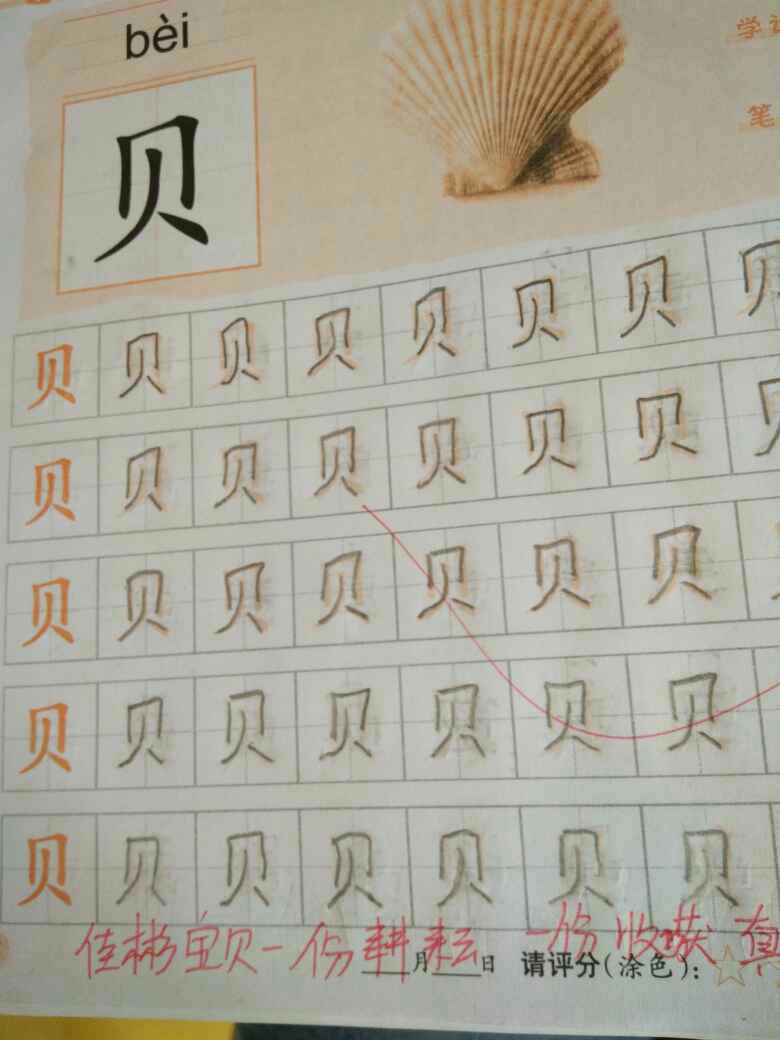 bèi
学
贝
笔
贝 贝 贝 贝 贝 贝 贝 贝
贝 贝 贝 贝 贝 贝 贝
贝 贝 贝 贝 贝 贝 贝
贝 贝 贝 贝 贝 贝 贝
贝 贝 贝 贝 贝 贝 贝
佳彬宝贝一份耕耘 一份收获 真
月 日 请评分(涂色):